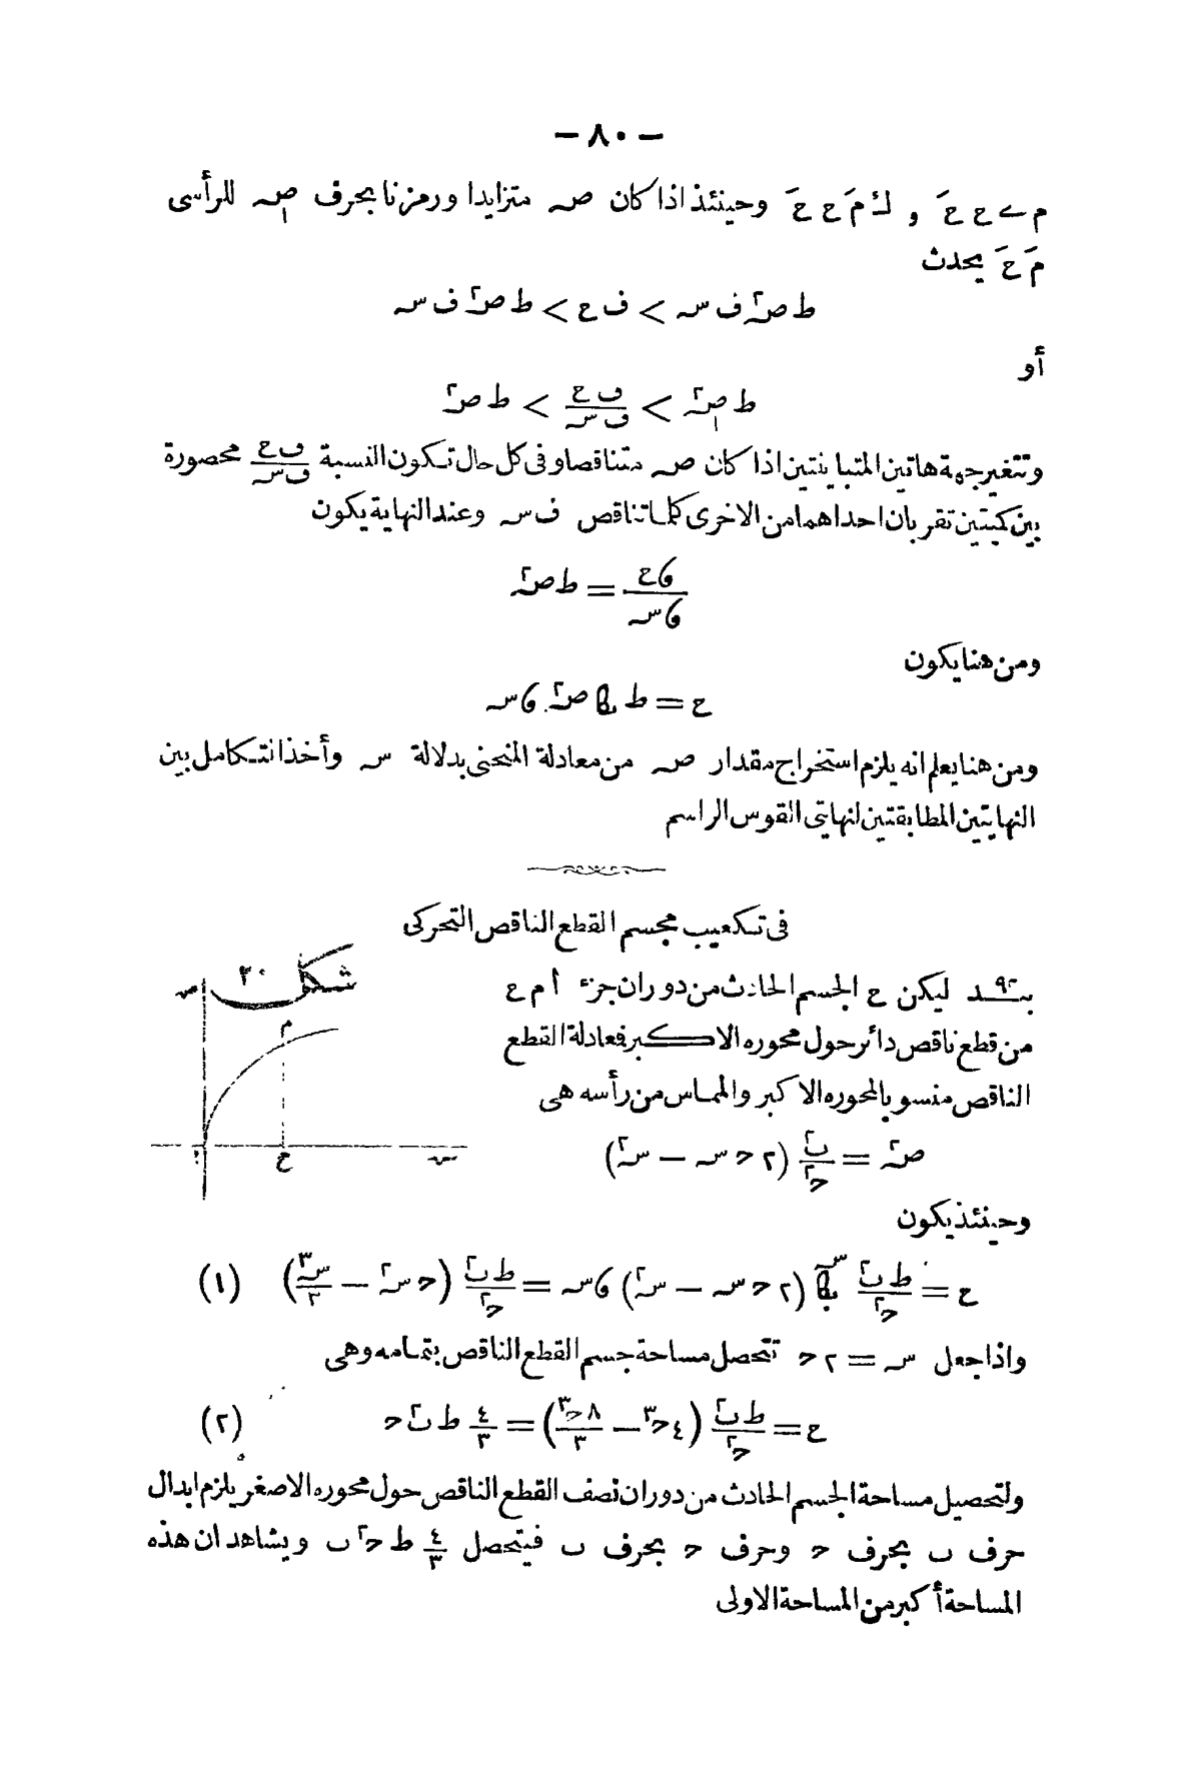 — ٨٠ —
م ے ع عَ و ك مَ ع عَ وحينئذ اذا كان صہ متزايدا ورمزنا بحرف صہ١ للرأسى
مَ عَ يحدث
ط صہ٢ ف سہ > ف ع > ط صہ٢ ف سہ
أو
ط صہ١٢ > ف ع / ف سہ > ط صہ٢
وتتغير جهة هاتين المتباينتين اذا كان صہ متناقصا وفى كل حال تكون النسبة ف ع / ف سہ محصورة
بين كميتين تقربان احداهما من الاخرى كلما تناقص ف سہ وعند النهاية يكون
ء ع / ء سہ = ط صہ٢
ومن هنا يكون
ع = ط ∫ صہ٢ . ء سہ
ومن هنا يعلم انه يلزم استخراج مقدار صہ من معادلة المنحنى بدلالة سہ وأخذ التكامل بين
النهايتين المطابقتين لنهايتى القوس الراسم
فى تكعيب مجسم القطع الناقص التحركى
شكل ٣٠
صہ
م
ع
سہ
بند ٩٠ ليكن ع الجسم الحادث من دوران جزء ا م ع
من قطع ناقص دائر حول محوره الاكبر فعادلة القطع
الناقص منسوبا لمحوره الاكبر والمماس من رأسه هى
صہ٢ = ب٢ / ح٢ (٢ ح سہ — سہ٢)
وحينئذ يكون
ع = ط ب٢ / ح٢ ∫ سہ (٢ ح سہ — سہ٢) ء سہ = ط ب٢ / ح٢ (ح سہ٢ — سہ٣ / ٣) (١)
واذا جعل سہ = ٢ ح تتحصل مساحة جسم القطع الناقص بتمامه وهى
ع = ط ب٢ / ح٢ (٤ ح٣ — ٨ ح٣ / ٣) = ٤/٣ ط ب٢ ح (٢)
ولتحصيل مساحة الجسم الحادث من دوران نصف القطع الناقص حول محوره الاصغر يلزم ابدال
حرف ب بحرف ح وحرف ح بحرف ب فيتحصل ٤/٣ ط ح٢ ب ويشاهد ان هذه
المساحة أكبر من المساحة الاولى